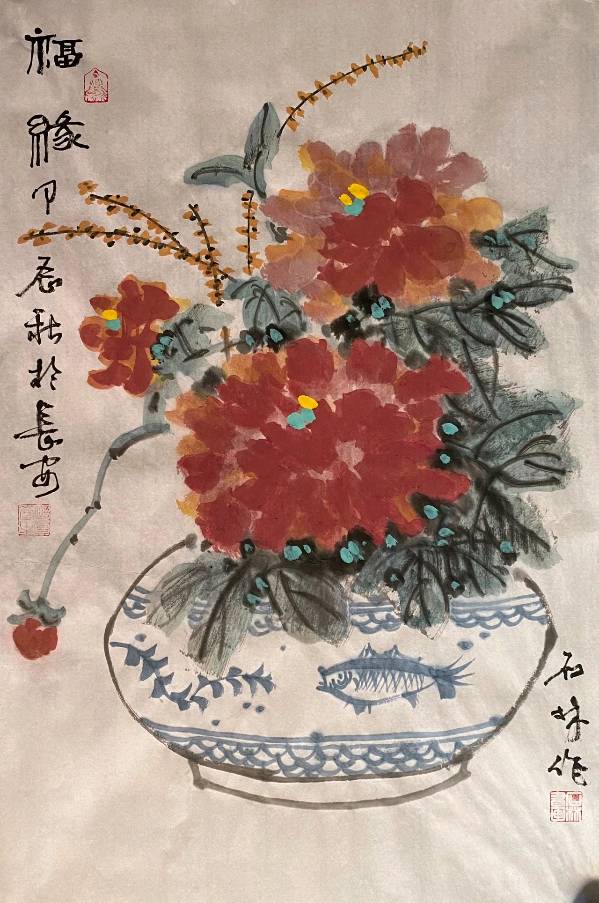 福缘甲辰秋於長安
石林作